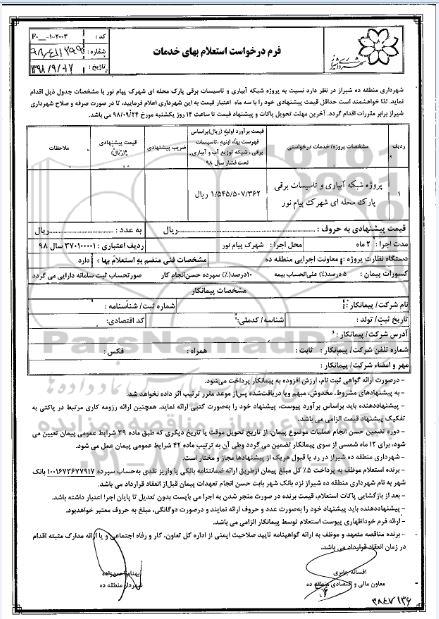 کد : ۱۰۰۲۰۰۳-۲۰
شماره :
تاریخ : ۱۳۹۸/۹/۱۷
فرم درخواست استعلام بهای خدمات
شهرداری منطقه ده شیراز در نظر دارد نسبت به پروژه شبکه آبیاری و تاسیسات برقی پارک محله ای شهرک پیام نور با مشخصات جدول ذیل اقدام
نماید. لذا خواهشمند است حداقل قیمت پیشنهادی خود را با سه ماه اعتبار قیمت به این شهرداری اعلام فرمایید، تا در صورت صرفه و صلاح شهرداری
شیراز برابر مقررات اقدام گردد. آخرین مهلت تحویل پاکات و پیشنهاد قیمت تا ساعت ۱۴ روز یکشنبه مورخ ۹۸/۰۹/۲۴ می باشد.
ردیف
مشخصات پروژه/خدمات درخواستی
قیمت برآورد اولیه (ریال)براساس
فهرست بهاء ابنیه، تاسیسات
برقی، شبکه توزیع آب و آبیاری،
تحت فشار سال ۹۸
ضریب پیشنهادی
قیمت پیشنهادی
(ریال)
ملاحظات
۱
پروژه شبکه آبیاری و تاسیسات برقی
پارک محله ای شهرک پیام نور
۱/۵۴۵/۵۰۷/۳۶۲ ریال
قیمت پیشنهادی به حروف : ریال به عدد : ریال
مدت اجرا : ۲ ماه محل اجرا : شهرک پیام نور ردیف اعتباری : ۳۷۰۱۰۰۰۱ سال ۹۸
دستگاه نظارت پروژه : معاونت اجرایی منطقه ده مشخصات فنی منضم به استعلام بها : دارد
کسورات پیمان : ۵ درصد(٪) علی الحساب بیمه ۱۰درصد(٪) سپرده حسن انجام کار صورتحساب ثبت سامانه دارایی می گردد
مشخصات پیمانکار
نام شرکت/ پیمانکار : شماره ثبت/ شناسنامه :
تاریخ ثبت/ تولد : شناسه/ کدملی : کد اقتصادی:
آدرس شرکت/ پیمانکار :
شماره تلفن شرکت/ پیمانکار : ثابت : همراه : فکس :
مهر و امضاء شرکت/ پیمانکار :
- درصورت ارائه گواهی ثبت نام، ارزش افزوده به پیمانکار پرداخت می‌شود.
- به پیشنهادهای مشروط، مخدوش، مبهم ویا دریافت‌شده پس‌از موعد مقرر ترتیب اثر داده نخواهد شد.
- پیشنهاددهنده باید براساس برآورد پیوست، پیشنهاد خود را به‌صورت کتبی ارائه نمایند. همچنین ارائه رزومه کاری مرتبط در پاکتی به
تفکیک پیشنهاد قیمت الزامی می باشد.
- دوره تضمین حسن انجام عملیات موضوع پیمان، از تاریخ تحویل موقت یا تاریخ دیگری که طبق ماده ۳۹ شرایط عمومی پیمان تعیین می
شود، برای ۱۲ ماه شمسی از سوی پیمانکار تضمین می گردد وطی آن به ترتیب ماده ۴۲ شرایط عمومی پیمان عمل می شود.
- شهرداری منطقه ده شیراز در رد یا قبول هریک از پیشنهادها مجاز و مختار است.
- برنده استعلام موظف به پرداخت ۵٪ کل مبلغ پیمان ازطریق ارائه ضمانتنامه بانکی یا واریز نقدی به‌حساب سپرده ۱۰۰۱۶۷۳۶۷۷۹۱۷ بانک
شهر به نام شهرداری منطقه ده شیراز نزد بانک شهر بابت حسن انجام تعهدات پیمان قبل‌از انعقاد قرارداد می‌باشد.
- بعد از بازگشایی پاکات استعلام، قیمت برنده در صورت منجر شدن به اجرا می بایست بدون تعدیل تا پایان اجرا اعتبار داشته باشد.
- پیشنهاددهنده باید پیشنهاد خود را به‌صورت عدد و حروف ارائه نمایند و درصورت دوگانگی، مبلغ به حروف معتبر خواهدبود.
- ارائه فرم خوداظهاری پیوست استعلام توسط پیمانکار الزامی می باشد.
- برنده مناقصه متعهد و موظف به ارائه گواهینامه تایید صلاحیت ایمنی از اداره کل تعاون، کار و رفاه اجتماعی و یا ارائه مدارک مثبته اقدام
در زمان انعقاد قرارداد می باشد.
معاون مالی و اقتصادی منطقه ده
شهردار منطقه ده